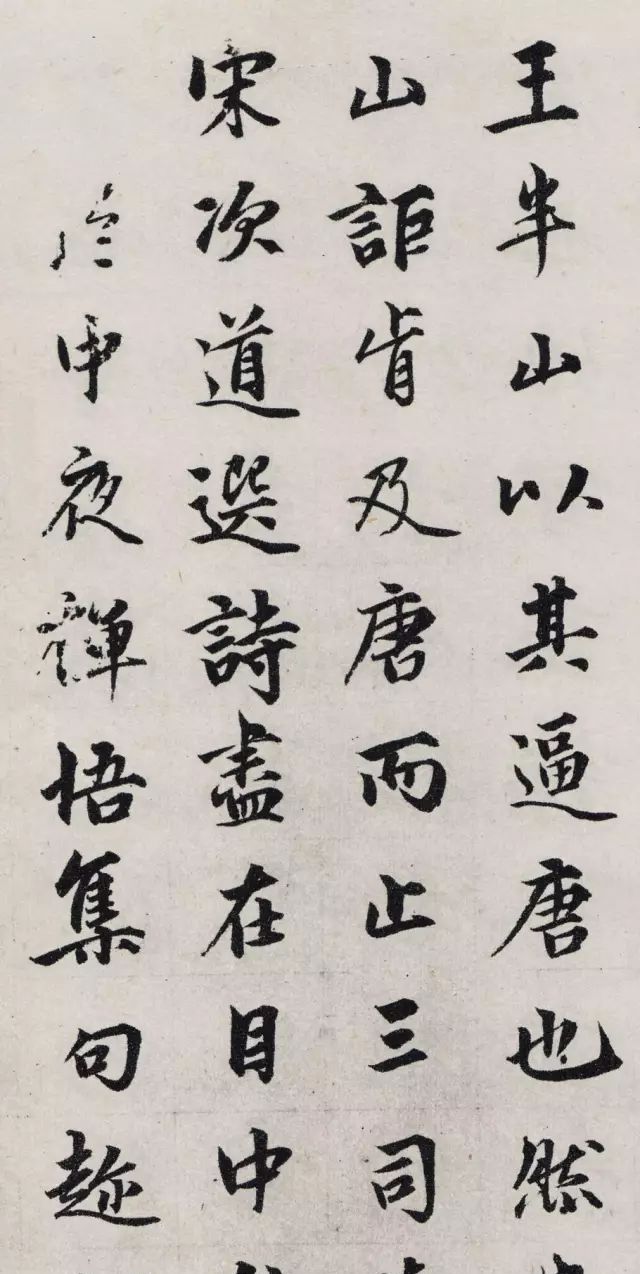 王半山以其逼唐也然
山詎肯及唐而止三司
宋次道選詩盡在目中
申夜禪悟集句趂